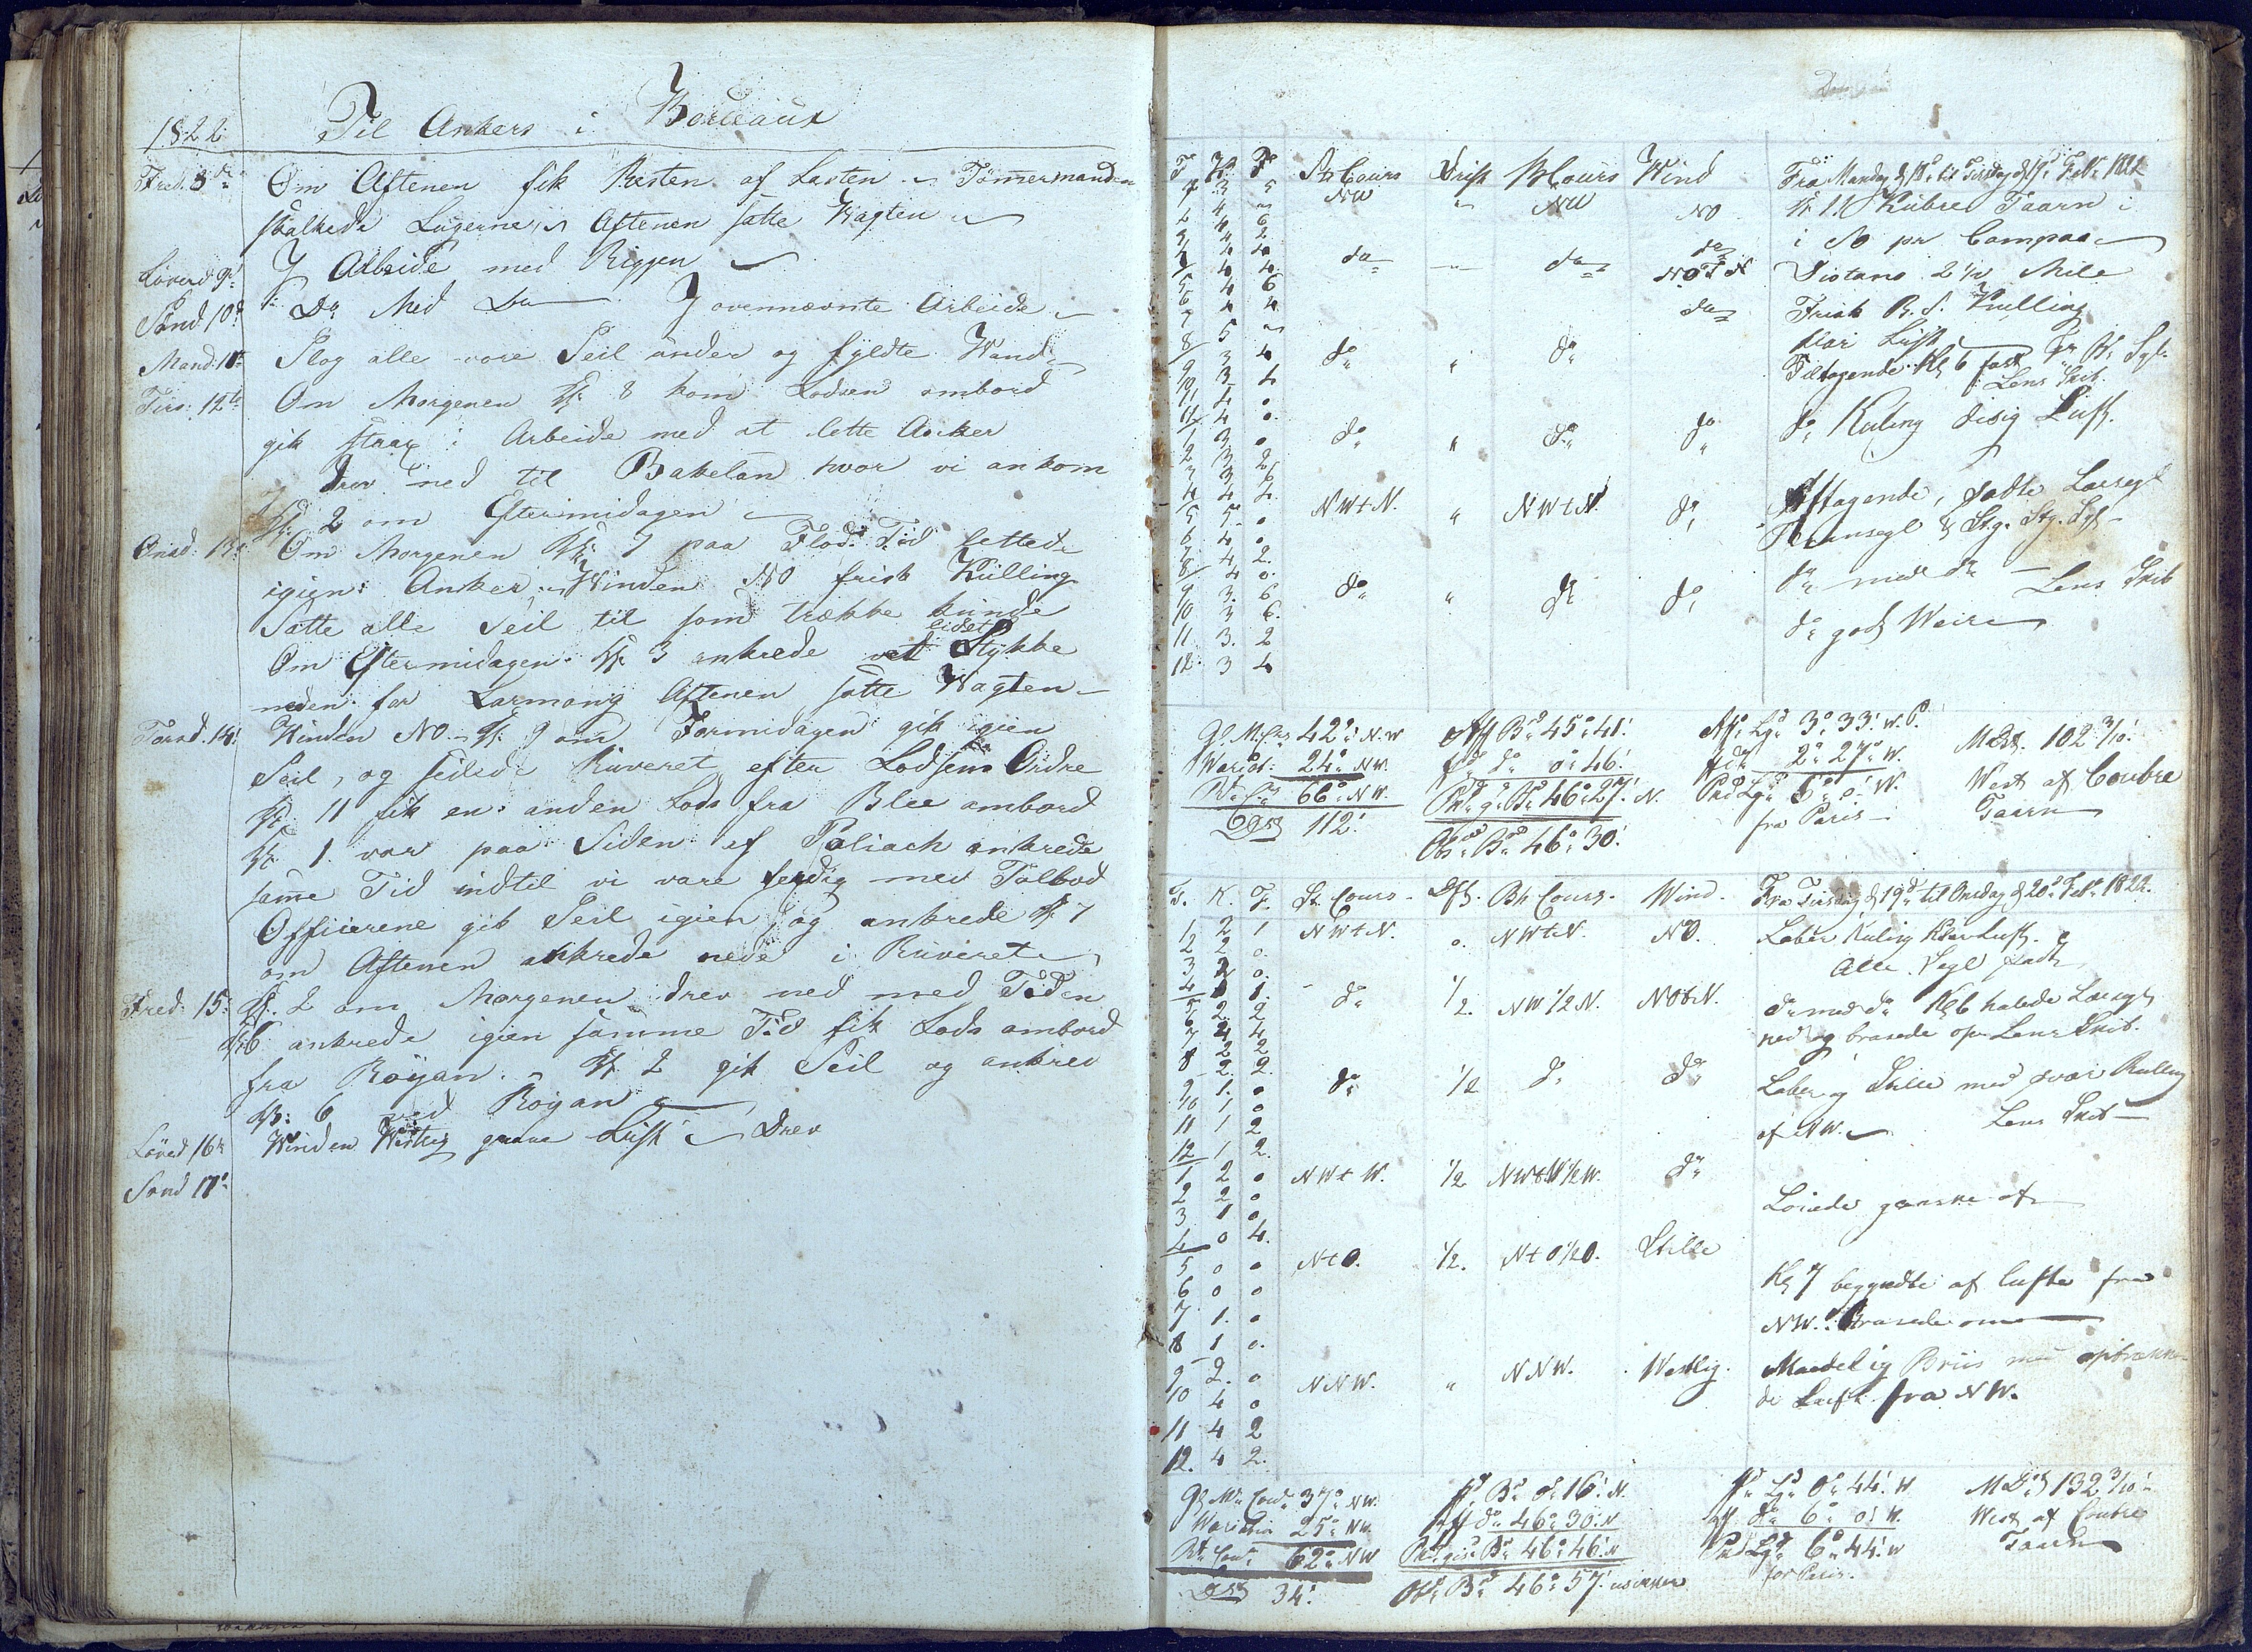 1822. Til Ankers i Bordeaux
Fred. 8de Om Aftenen fik Resten af Lasten Tømmermanden
skalkede Lugerne, Aftenen satte Wagten
Løverd 9d I Arbeide med Riggen
Sønd 10d Do Med Do I ovennævnte Arbeide
Mand. 11te Slog alle vore Seil under og fyldte Wand
Tirs: 12te Om Morgenen Kl: 8 kom Lodsen ombord
gik strax i Arbeide med at lette Anker
drev ned til Bakelan hvor vi ankom
Kl: 2 om Eftermidagen
Onsd: 13d Om Morgenen Kl: 7 paa Flod Tid lettede
igien Anker, Winden NO frisk Kulling
Satte alle Seil til som trække kunde
Om Eftermidagen Kl 3 ankrede et lidet Stykke
neden for Larmang Aftenen satte Wagten
Torsd. 14d Winden NO. Kl. 9 om Formidagen gik igien
Seil, og seilede Ruveret efter Lodsens Ordre
Kl 11 fik en anden Lods fra Blee ombord
Kl 1. var paa Siden af Poliack ankrede
samme Tid indtil vi vare ferdig med Tolbod
Officierene gik Seil igien og ankrede Kl 7
om Aftenen ankrede nede i Ruveret
Fred: 15: Kl. 2 om Morgenen drev ned med Tiden
Kl 6 ankrede igien samme Tid fik Lods ombord
fra Royan. Kl 2 gik Seil og ankrede
Kl: 6 ved Royan
Løverd 16d Winden Westlig graae Luft Drev
Sønd 17d
T K F St Cours Drift B Cours Wind Fra Mandag d 18d til Tirsdag d 19d Febr 1822
1 3 5 NW " NW NO Kl 1 Kubre Taarn i
2 4 "
i NO pr Compas
3 4 6
4 4 4 do " do do
NOtN Distans 2 1/2 Mile
5 4 6
6 4 4 do Frisk B. S. Kulling
7 5 "
klar Luft
8 3 4 do " do Tiltagende Kl 6 fast
Lens Skib.
9 3 4
10 3 4
11 4 0
12 4 0 do " do do do Kuling disig Luft.
1 3 0
2 3 2
3 3 6
4 4 4 NWtN. " NWtN. do Aftagende, satte Læsegl
5 5 0
6 4 0
7 4 2
8 4 0 do " do do do med do Lens Skib
9 3 6
10 3 6 do god Weir
11 3 2
12 3 4
42° NW Aff Bd 45° 41' Aff. Lgd 3° 33' W. P. 102 3/10
24° NW. fd do 0° 46' fd do 2° 27' W. West af Coubre
66° NW. Bd 46° 27' N. Lgd 6° 0' W. Taarn
112' Obs Bd 46° 30' fra Paris
T. K. F. St Cours Dft. Bh Cours. Wind Fra Tirsdag d 19d til Onsdag d 20d Febr 1822.
1 2 1 NWtN. 0. NWtN. NO. Laber Kuling Klar Luft.
2 2 0
3 2 0 Alle Segl sadt
4 1 1 do 1/2 NW 1/2 N. NOtN. do med do Kl 6 halede Læsegl
5 2 2
6 2 4 ned og brasede op. Lens Skib.
7 2 2
8 2 2 do 1/2 do do Laber og Stille med svær Rulling
9 1 0
10 1 0 af NW. Lens Skib
11 1 2
12 1 2 NWtW. 1/2 NWtW 1/2 W. do
1 2 0
2 2 0 Løiede ganske af
3 1 0
4 0 4 NtO. 1/2. NtO 1/2 O. Stille
5 0 0
6 0 0 Kl 7 begyndte at lufte fra
7 1 0 NW. Brasede om
8 1 0
9 2 0 NNW. " NNW. Westlig. Maadelig Briis med optrækken-
10 4 0 de Luft fra NW.
11 4 2
12. 4 2.
37° NW. fd Bd 0° 16' N. fd Lgd 0° 44' W. 132 3/10
25° NW. Aff do 46° 30' N aff do 6° 0' W. West af Coubre
62° NW Bd 46° 46' N Lgd 6° 44' W Taarn
34' Obs Bd 46° 57' usikker for Paris.